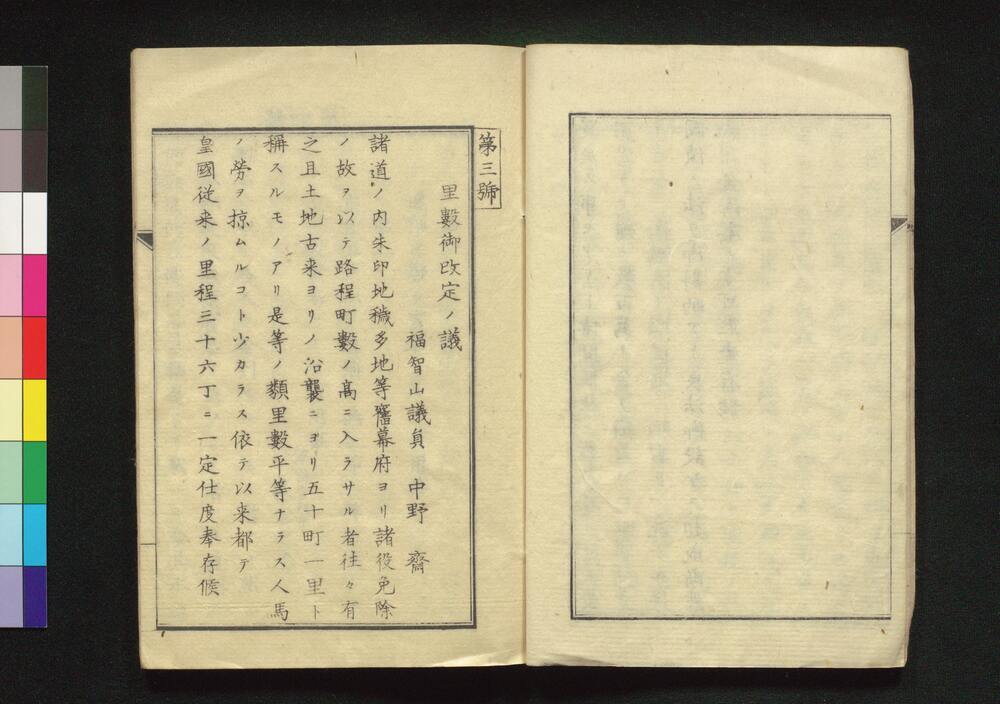 第三號
里數御改定ノ議
福智山議員 中野 齋
諸道ノ内朱印地穢多地等舊幕府ヨリ諸役免除
ノ故ヲ以テ路程町數ノ高ニ入ラサル者往々有
之且土地古来ヨリノ沿襲ニヨリ五十町一里ト
稱スルモノアリ是等ノ類里數平等ナラス人馬
ノ勞ヲ掠ムルコト少カラス依テ以来都テ
皇國従来ノ里程三十六丁ニ一定仕度奉存候